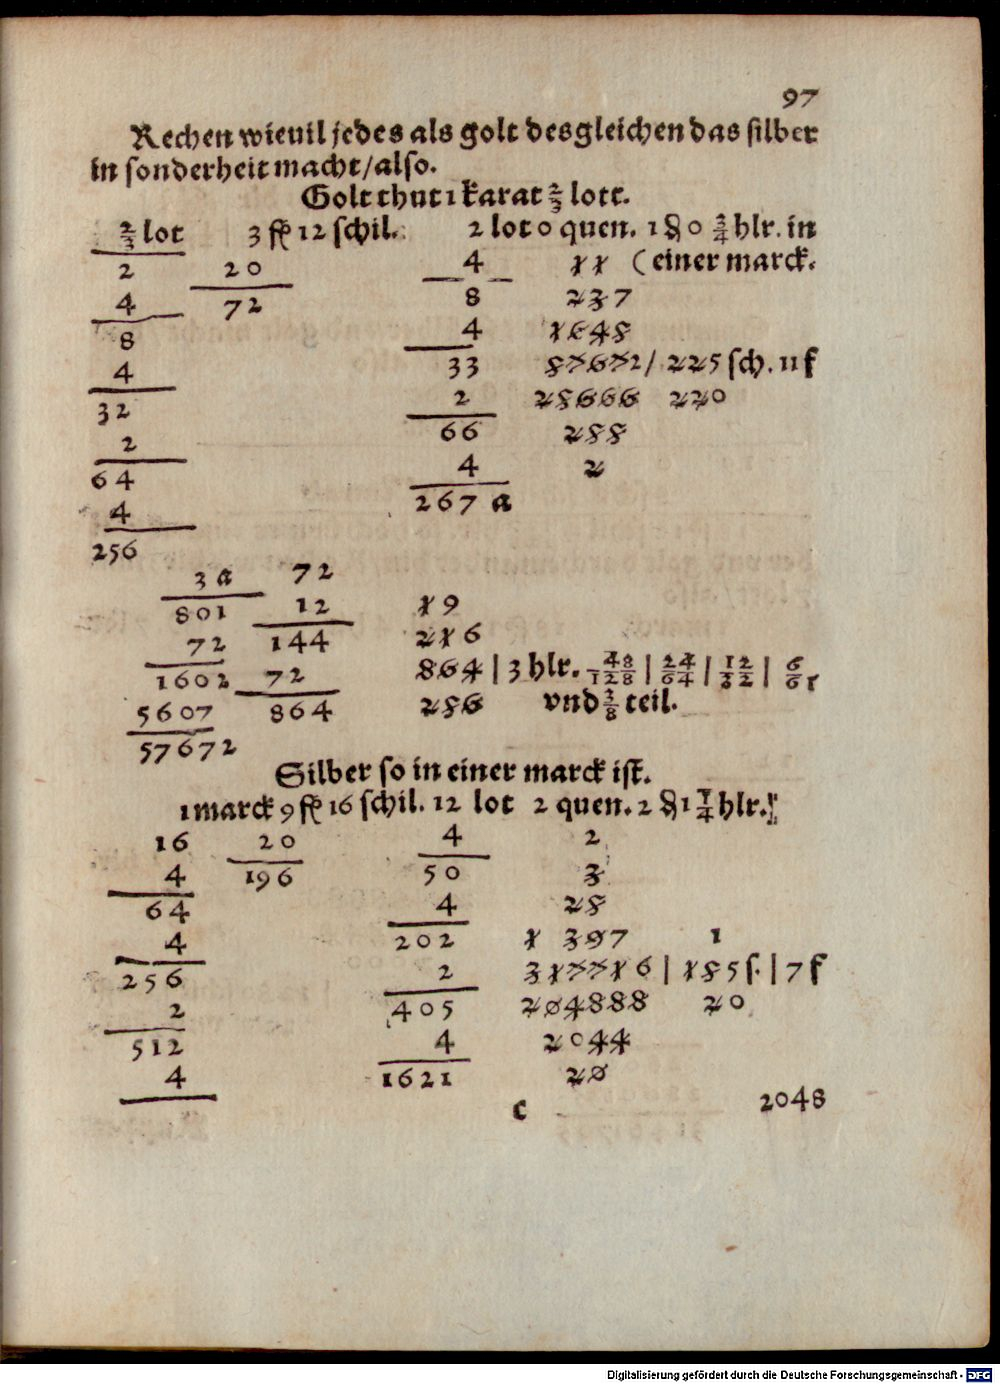 97
Rechen wieuil jedes als golt desgleichen das silber
in sonderheit macht/also.
Golt thut 1 karat ⅔ lott.
⅔ lot 3 fl 12 schil. 2 lot 0 quen. 1 ₰ 0 ¾ hlr. in
2 20 4 11 (einer marck.
4 72 8 237
8 4 1648
4 33 87672/ 225 sch. 11 f
32 2 28666 220
2 66 288
64 4 2
4 267 a
256
3 a 72
801 12 19
72 144 216
1602 72 864 | 3 hlr. 48/128 | 24/64 | 12/32 | 6/6
5607 864 286 vnd ⅜ teil.
57672
Silber so in einer marck ist.
1 marck 9 fl 16 schil. 12 lot 2 quen. 2 ₰ 1 ¼ hlr.
16 20 4 2
4 196 50 3
64 4 28
4 202 1 397 1
256 2 317716 | 185 s. | 7 f
2 405 204888 20
512 4 2044
4 1621 20
c 2048
Digitalisierung gefördert durch die Deutsche Forschungsgemeinschaft - DFG